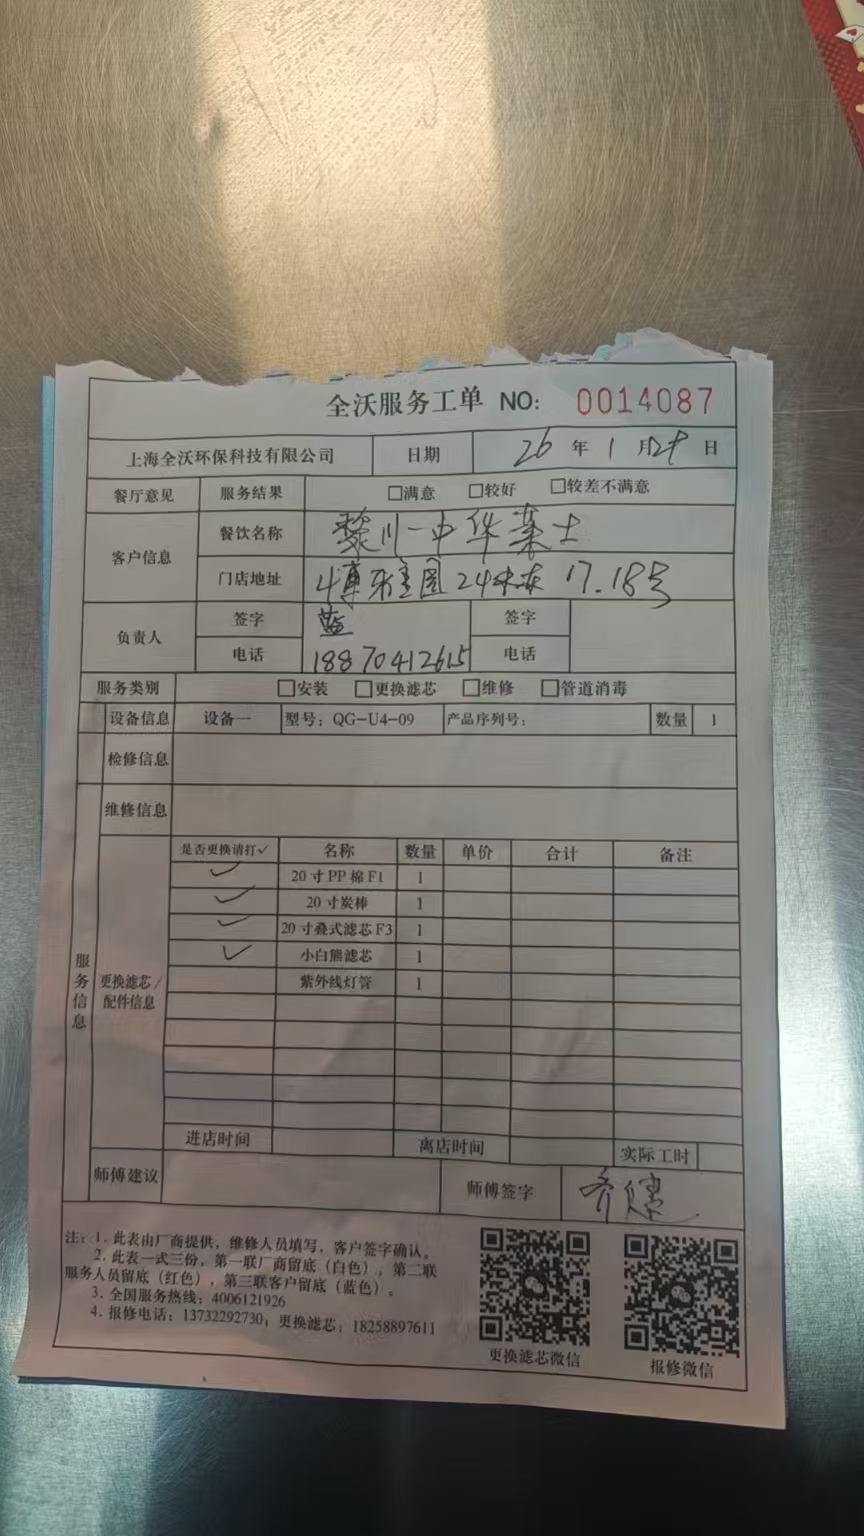 全沃服务工单 NO: 0014087
上海全沃环保科技有限公司 日期 26 年 1 月 29 日
餐厅意见 服务结果 □满意 □较好 □较差不满意
客户信息 餐饮名称 黎川一中华莱士
门店地址 博雅圆24栋 17.18号
负责人 签字 蓝 签字
电话 18870412615 电话
服务类别 □安装 □更换滤芯 □维修 □管道消毒
设备信息 设备一 型号：QG-U4-09 产品序列号： 数量 1
检修信息
维修信息
服务信息 更换滤芯/配件信息 是否更换请打✓ 名称 数量 单价 合计 备注
✓ 20寸PP棉F1 1
✓ 20寸炭棒 1
✓ 20寸叠式滤芯F3 1
✓ 小白熊滤芯 1
紫外线灯管 1
进店时间 离店时间 实际工时
师傅建议 师傅签字
注：1. 此表由厂商提供，维修人员填写，客户签字确认。
2. 此表一式三份，第一联厂商留底（白色），第二联
服务人员留底（红色），第三联客户留底（蓝色）。
3. 全国服务热线：4006121926
4. 报修电话：13732292730，更换滤芯：18258897611
更换滤芯微信 报修微信